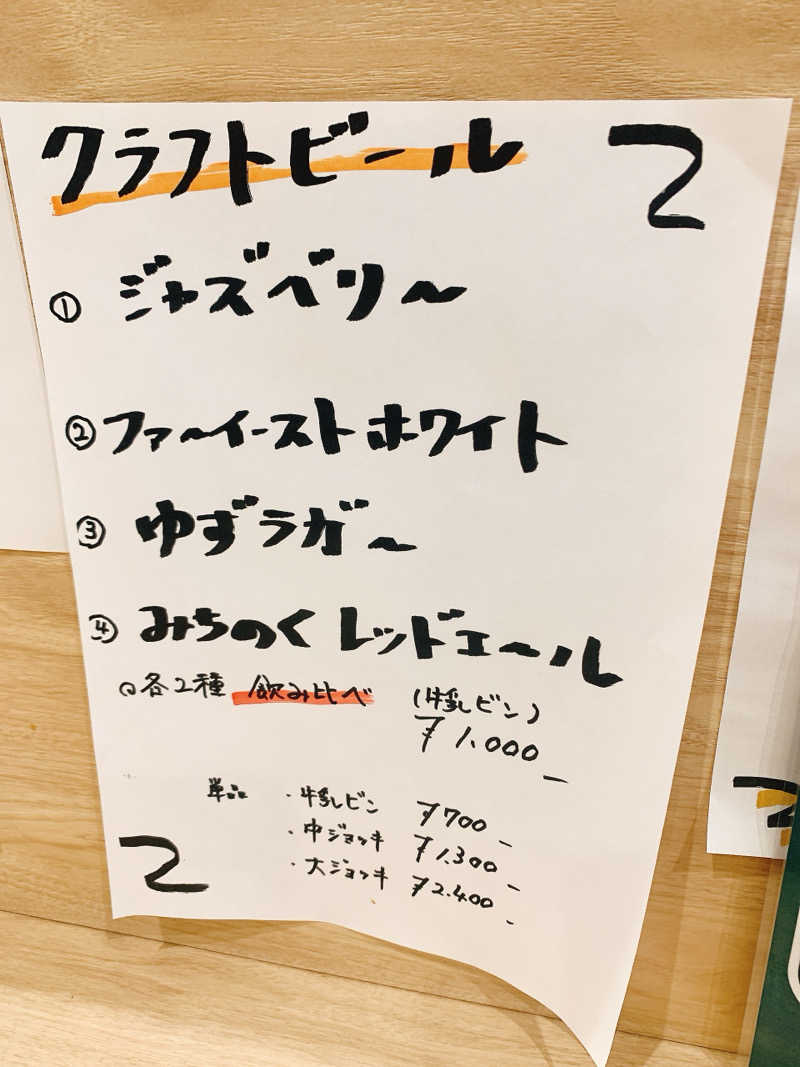 クラフトビール
① ジャズベリ〜
② ファ〜イースト ホワイト
③ ゆずラガ〜
④ みちのく レッドエール
○各2種 飲み比べ (牛乳ビン)
¥1,000
単品 ・牛乳ビン ¥700
・中ジョッキ ¥1,300
・大ジョッキ ¥2.400